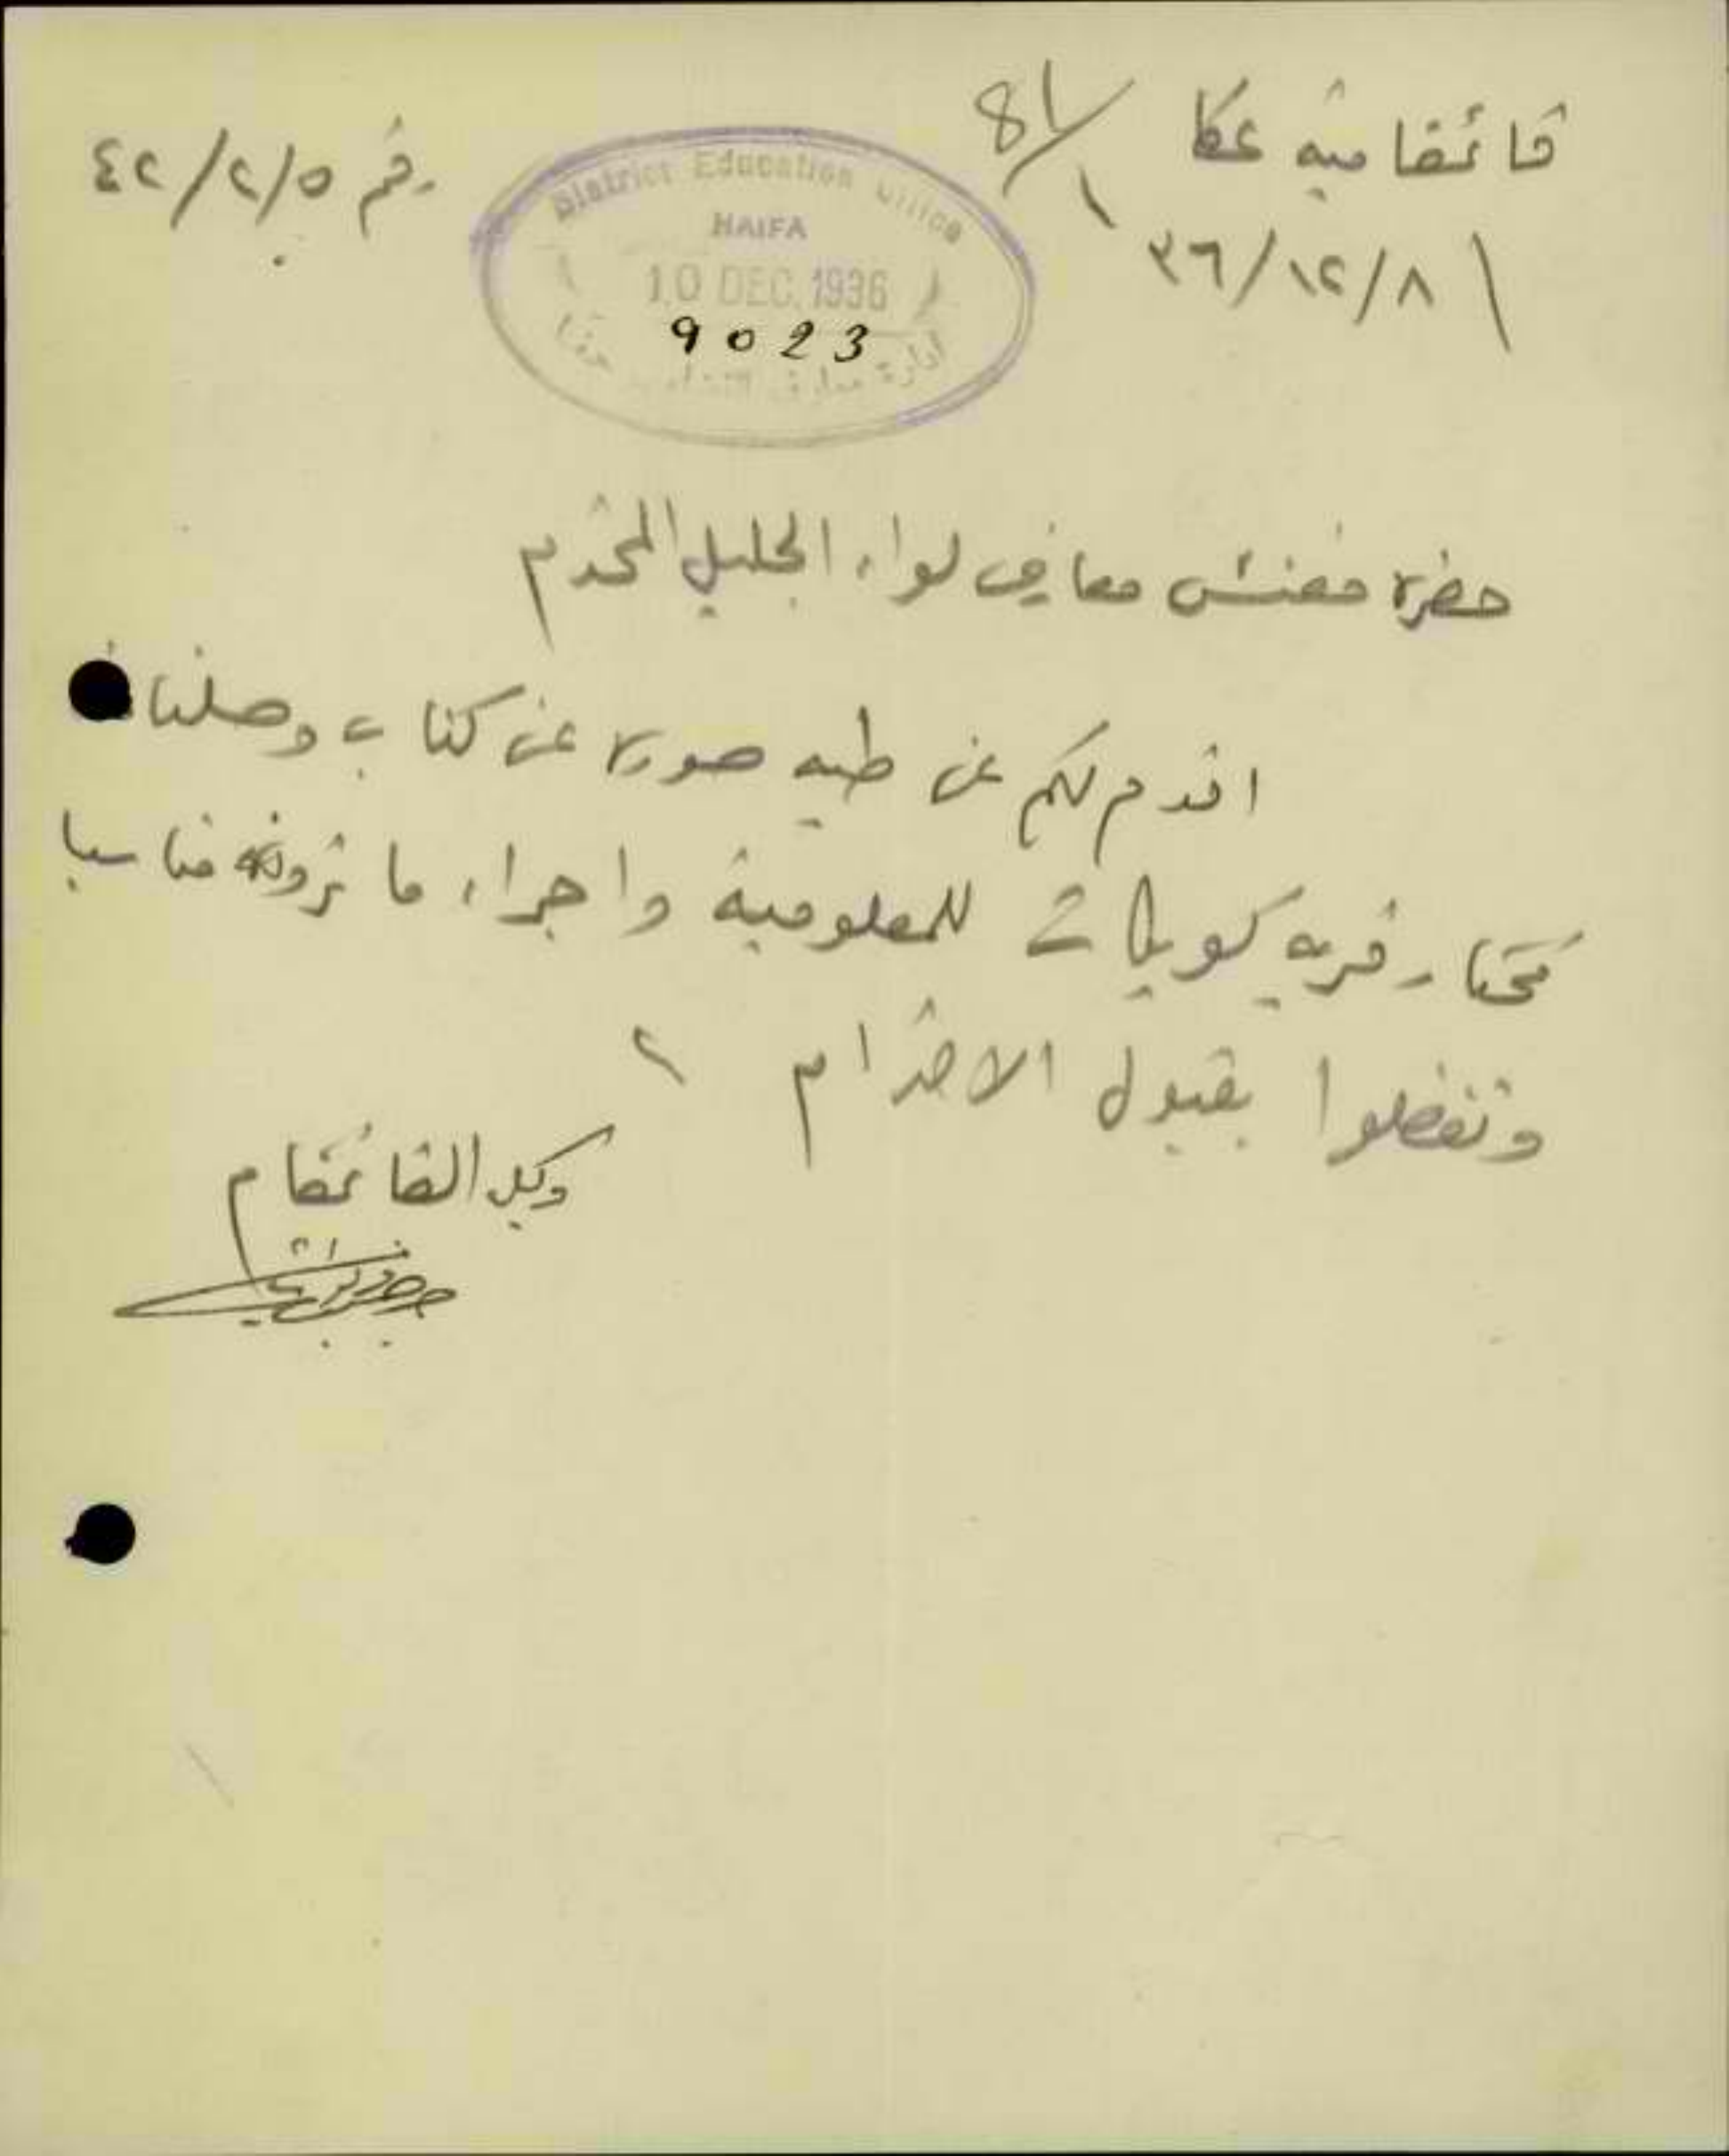 قائمقامية عكا
81/1
رقم ٤٢/٢/٥
٣٦/١٢/٨
District Education Office
HAIFA
10 DEC. 1936
9023
ادارة معارف
حيفا
حضرة مفتش معارف لواء الجليل المحترم
اقدم لكم عن طيه صورة عن كتاب وصلنا
مختار قرية كويكات للمعلومية واجراء ما ترونه مناسبا
وتفضلوا بقبول الاحترام
وكيل القائمقام